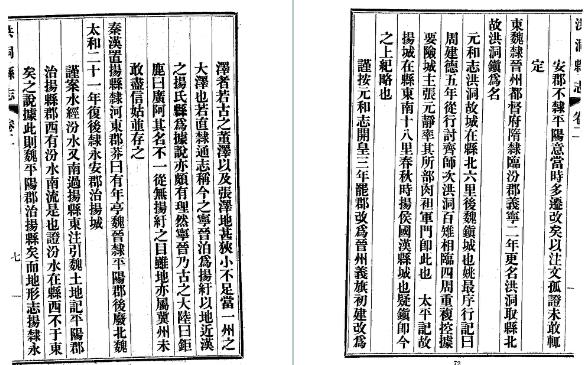 澤者若古之董澤以及張澤地甚狹小不足當一州之
大澤也若直隸通志稱今之寧晉泊為揚紆以地近漢
之揚氏縣為據說亦頗有理然寧晉乃古之大陸曰鉅
鹿曰廣阿其名不一從無揚紆之目雖地亦屬冀州未
敢盡信姑並存之
秦漢置揚縣隸河東郡莽曰有年亭魏晉隸平陽郡後廢北魏
太和二十一年復後隸永安郡治揚城
謹案水經汾水又南過揚縣東注引魏土地記平陽郡
治揚縣郡西有汾水南流是也證汾水在縣西不于東
矣之說據此則魏平陽郡治揚縣矣而地形志揚隸永
洪洞縣志 卷二
七
洪洞縣志 卷二
安郡不隸平陽意當時多遷改矣以注文孤證未敢輒
定
東魏隸晉州都督府隋隸臨汾郡義寧二年更名洪洞取縣北
故洪洞鎮為名
元和志洪洞故城在縣北六里後魏鎮城也姚最序行記曰
周建德五年從行討齊師次洪洞百雉相臨四周重複控據
要險城主張元靜率其所部肉袒軍門卽此也 太平記故
揚城在縣東南十八里春秋時揚侯國漢縣城也疑鎮卽今
之上紀略也
謹按元和志開皇三年罷郡改為晉州義旗初建改為
72